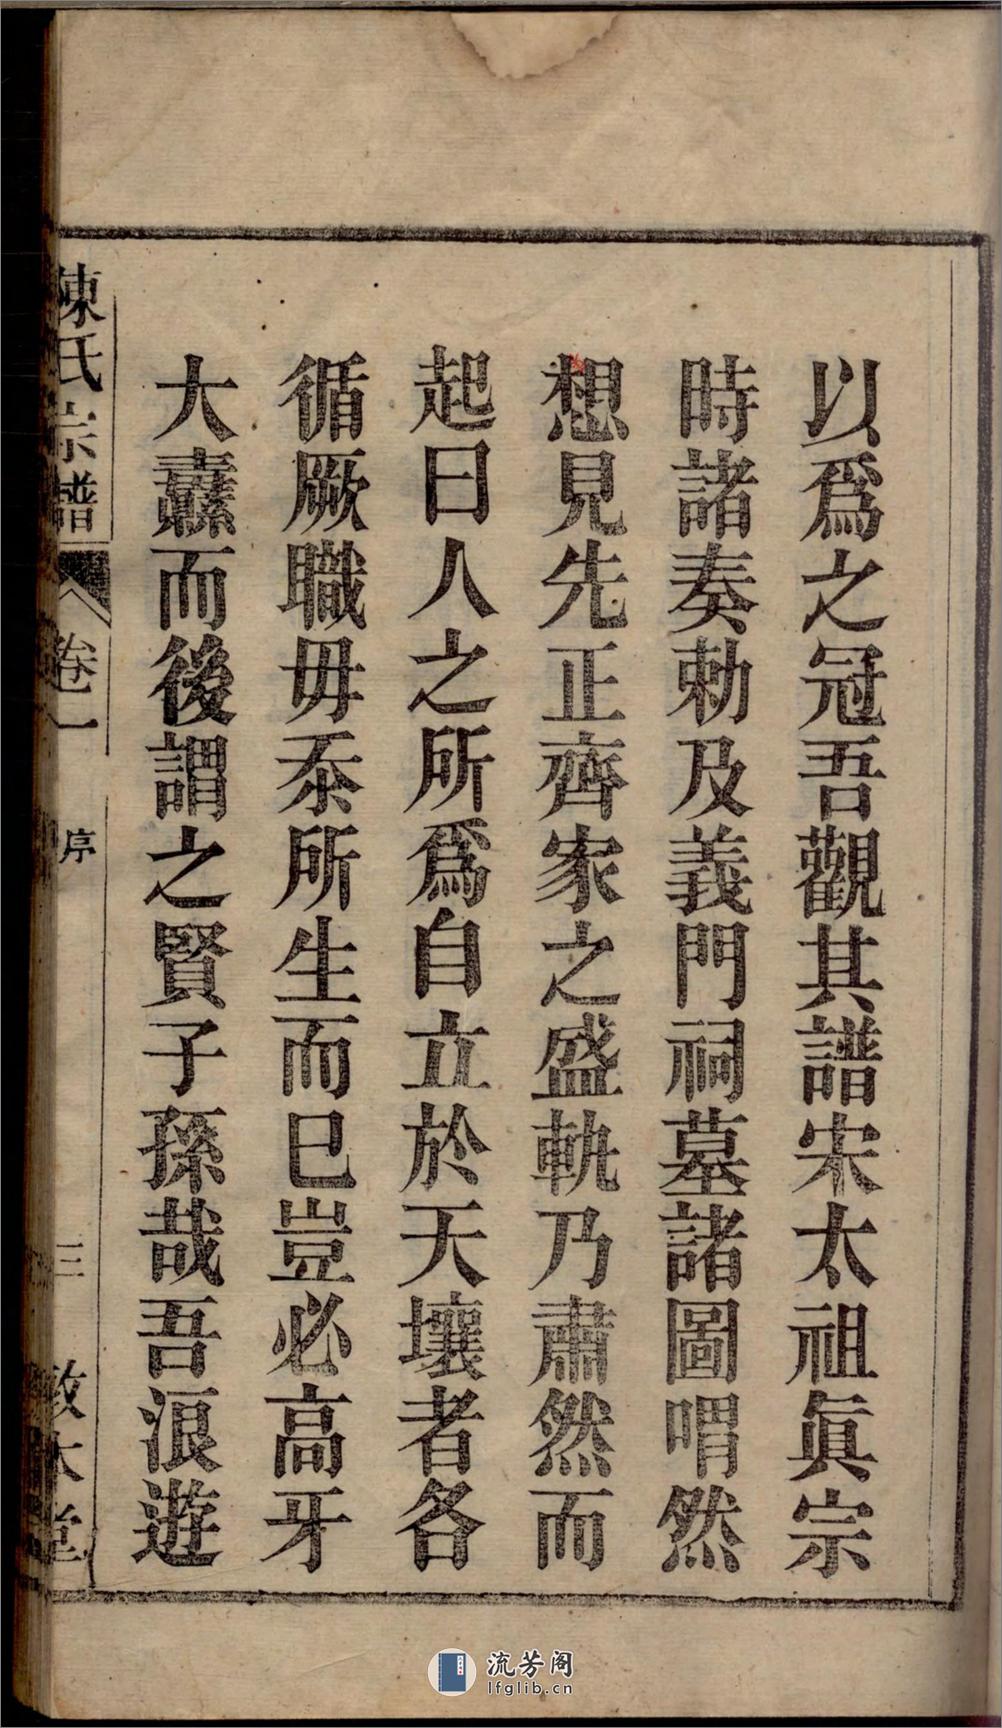 以爲之冠吾觀其譜宋太祖眞宗
時諸奏勅及義門祠墓諸圖喟然
想見先正齊家之盛軌乃肅然而
起曰人之所爲自立於天壤者各
循厥職毋忝所生而已豈必高牙
大纛而後謂之賢子孫哉吾浪遊
陳氏宗譜
卷一
序
三
敦本堂
流芳阁
lfglib.cn